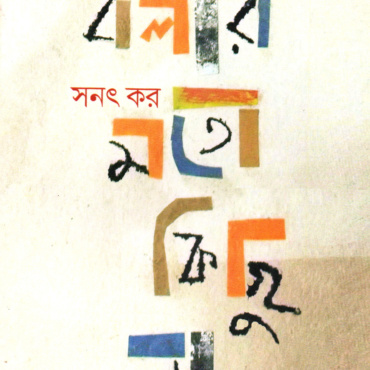 বলার
সনৎ কর
মতো
কিছু